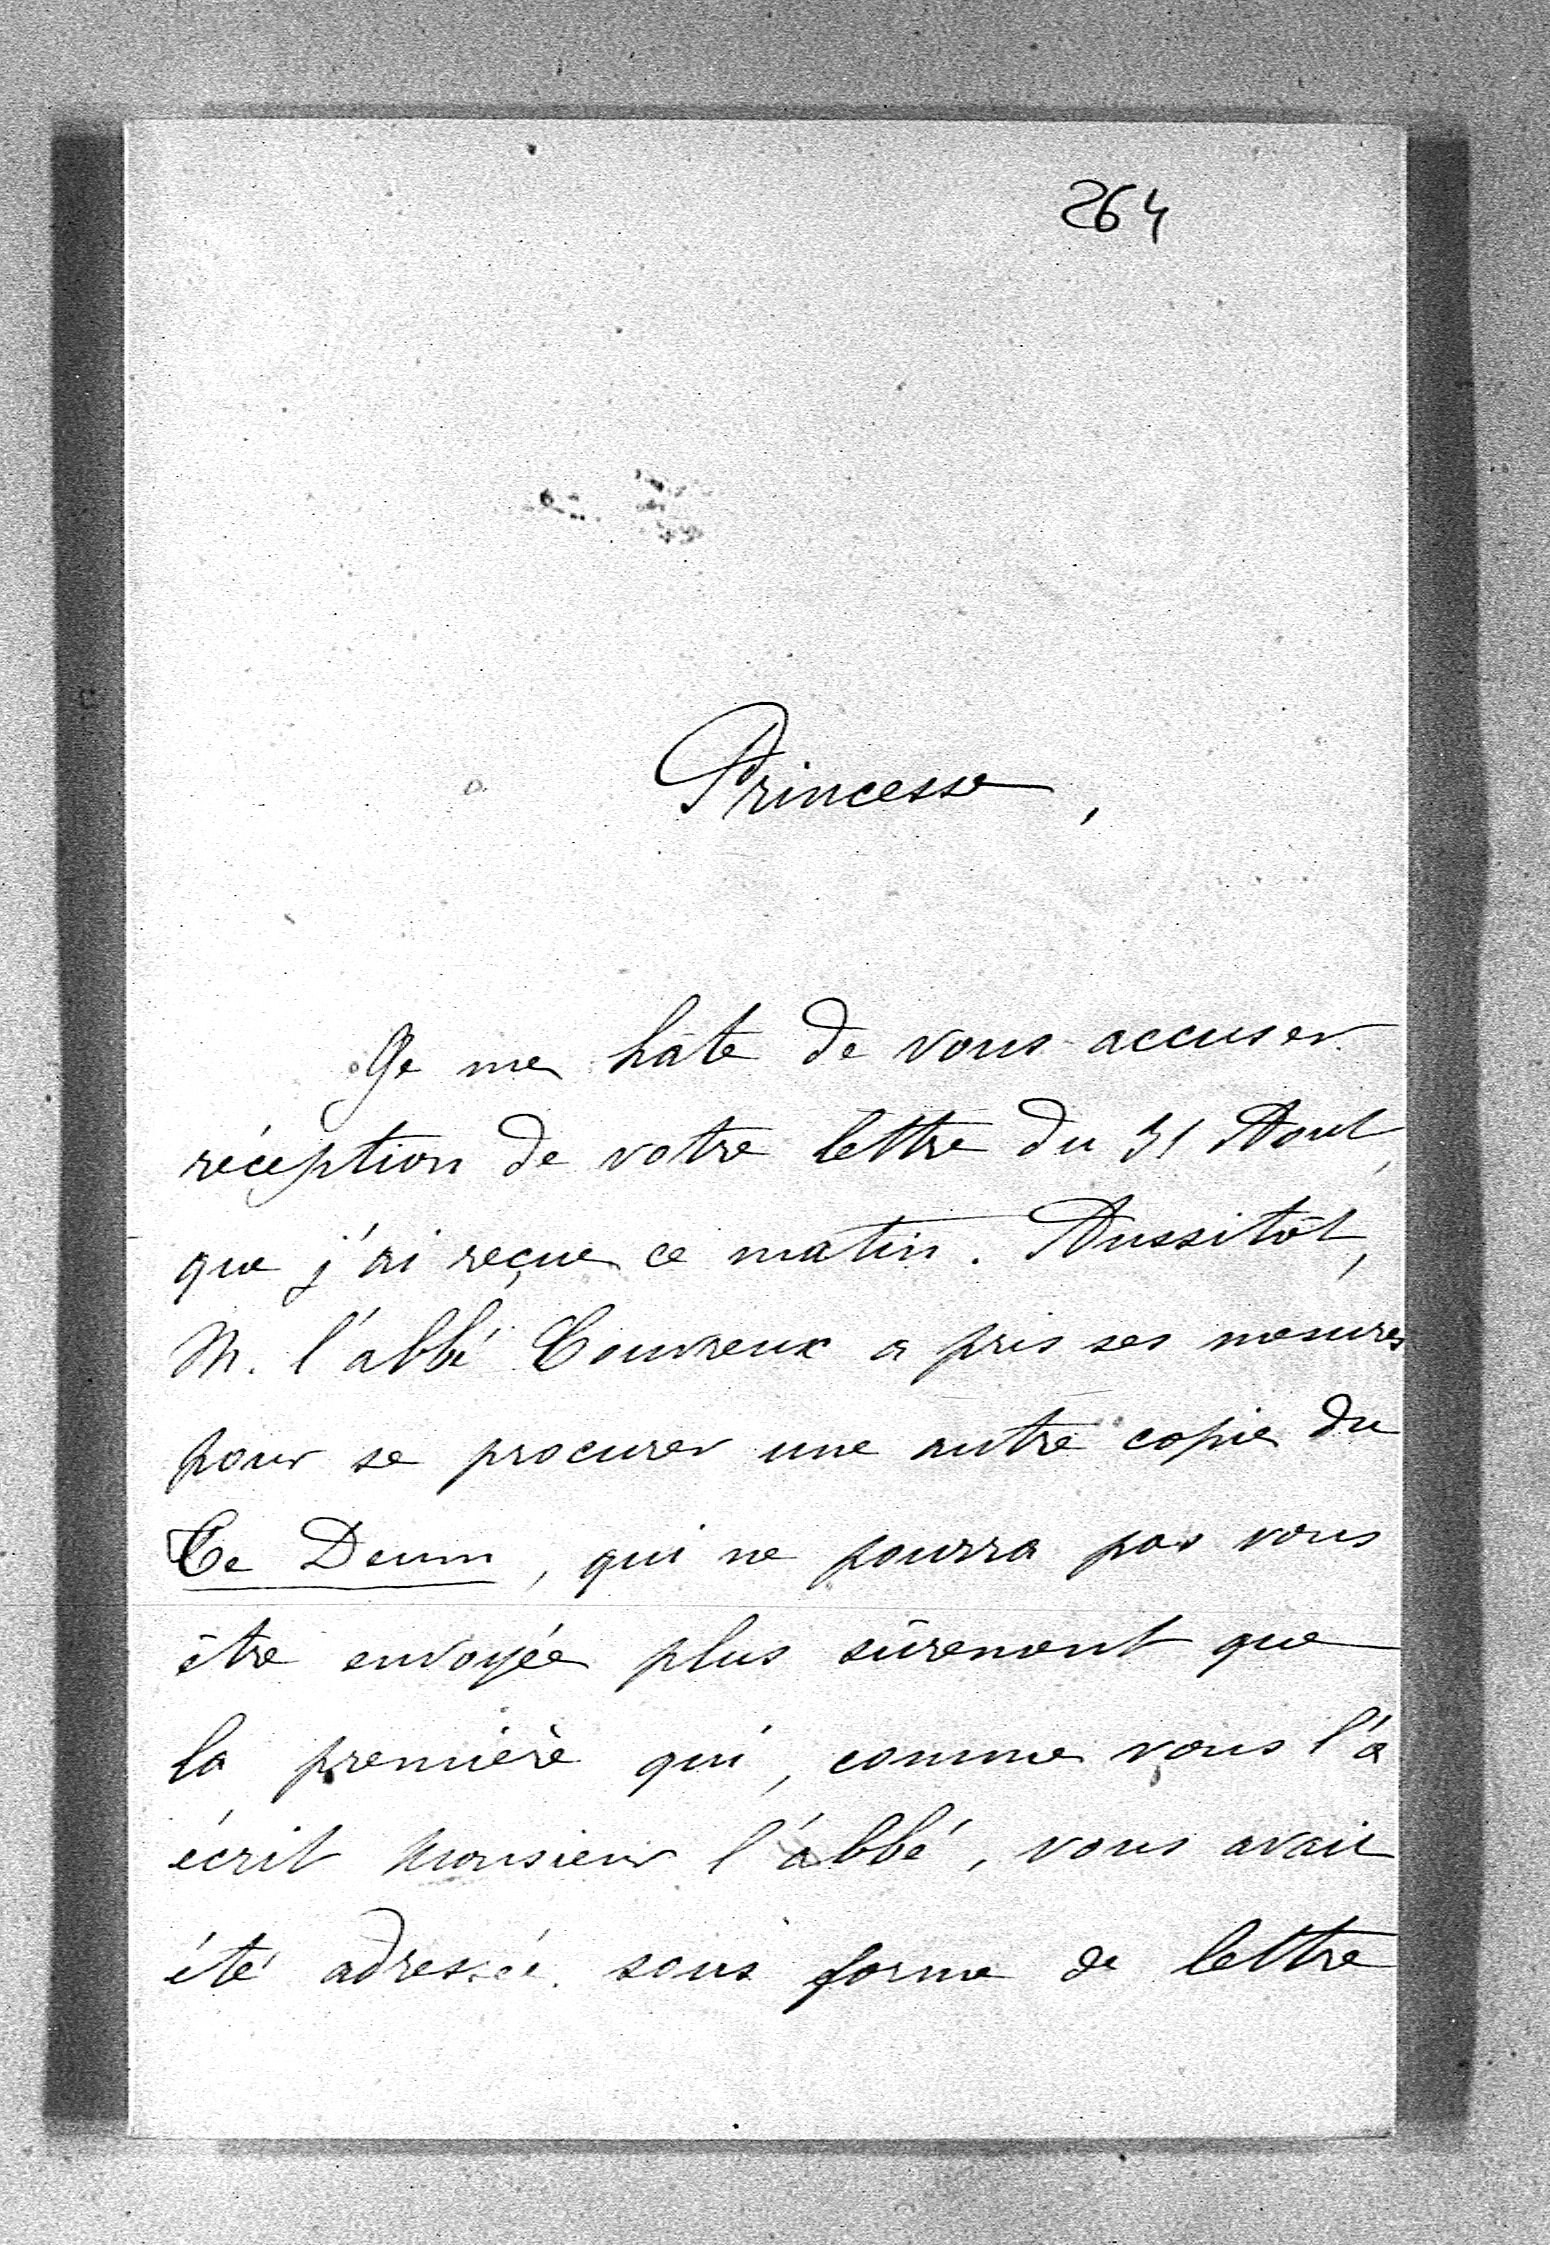 264
Princesse,
Je me hâte de vous accuser
réception de votre lettre du 31 Août,
que j'ai reçue ce matin. Aussitôt,
M. l'abbé Couvreux a pris ses mesures
pour se procurer une autre copie du
Te Deum, qui ne pourra pas vous
être envoyée plus sûrement que
la première qui, comme vous l'a
écrit Monsieur l'abbé, vous avait
été adressée sous forme de lettre